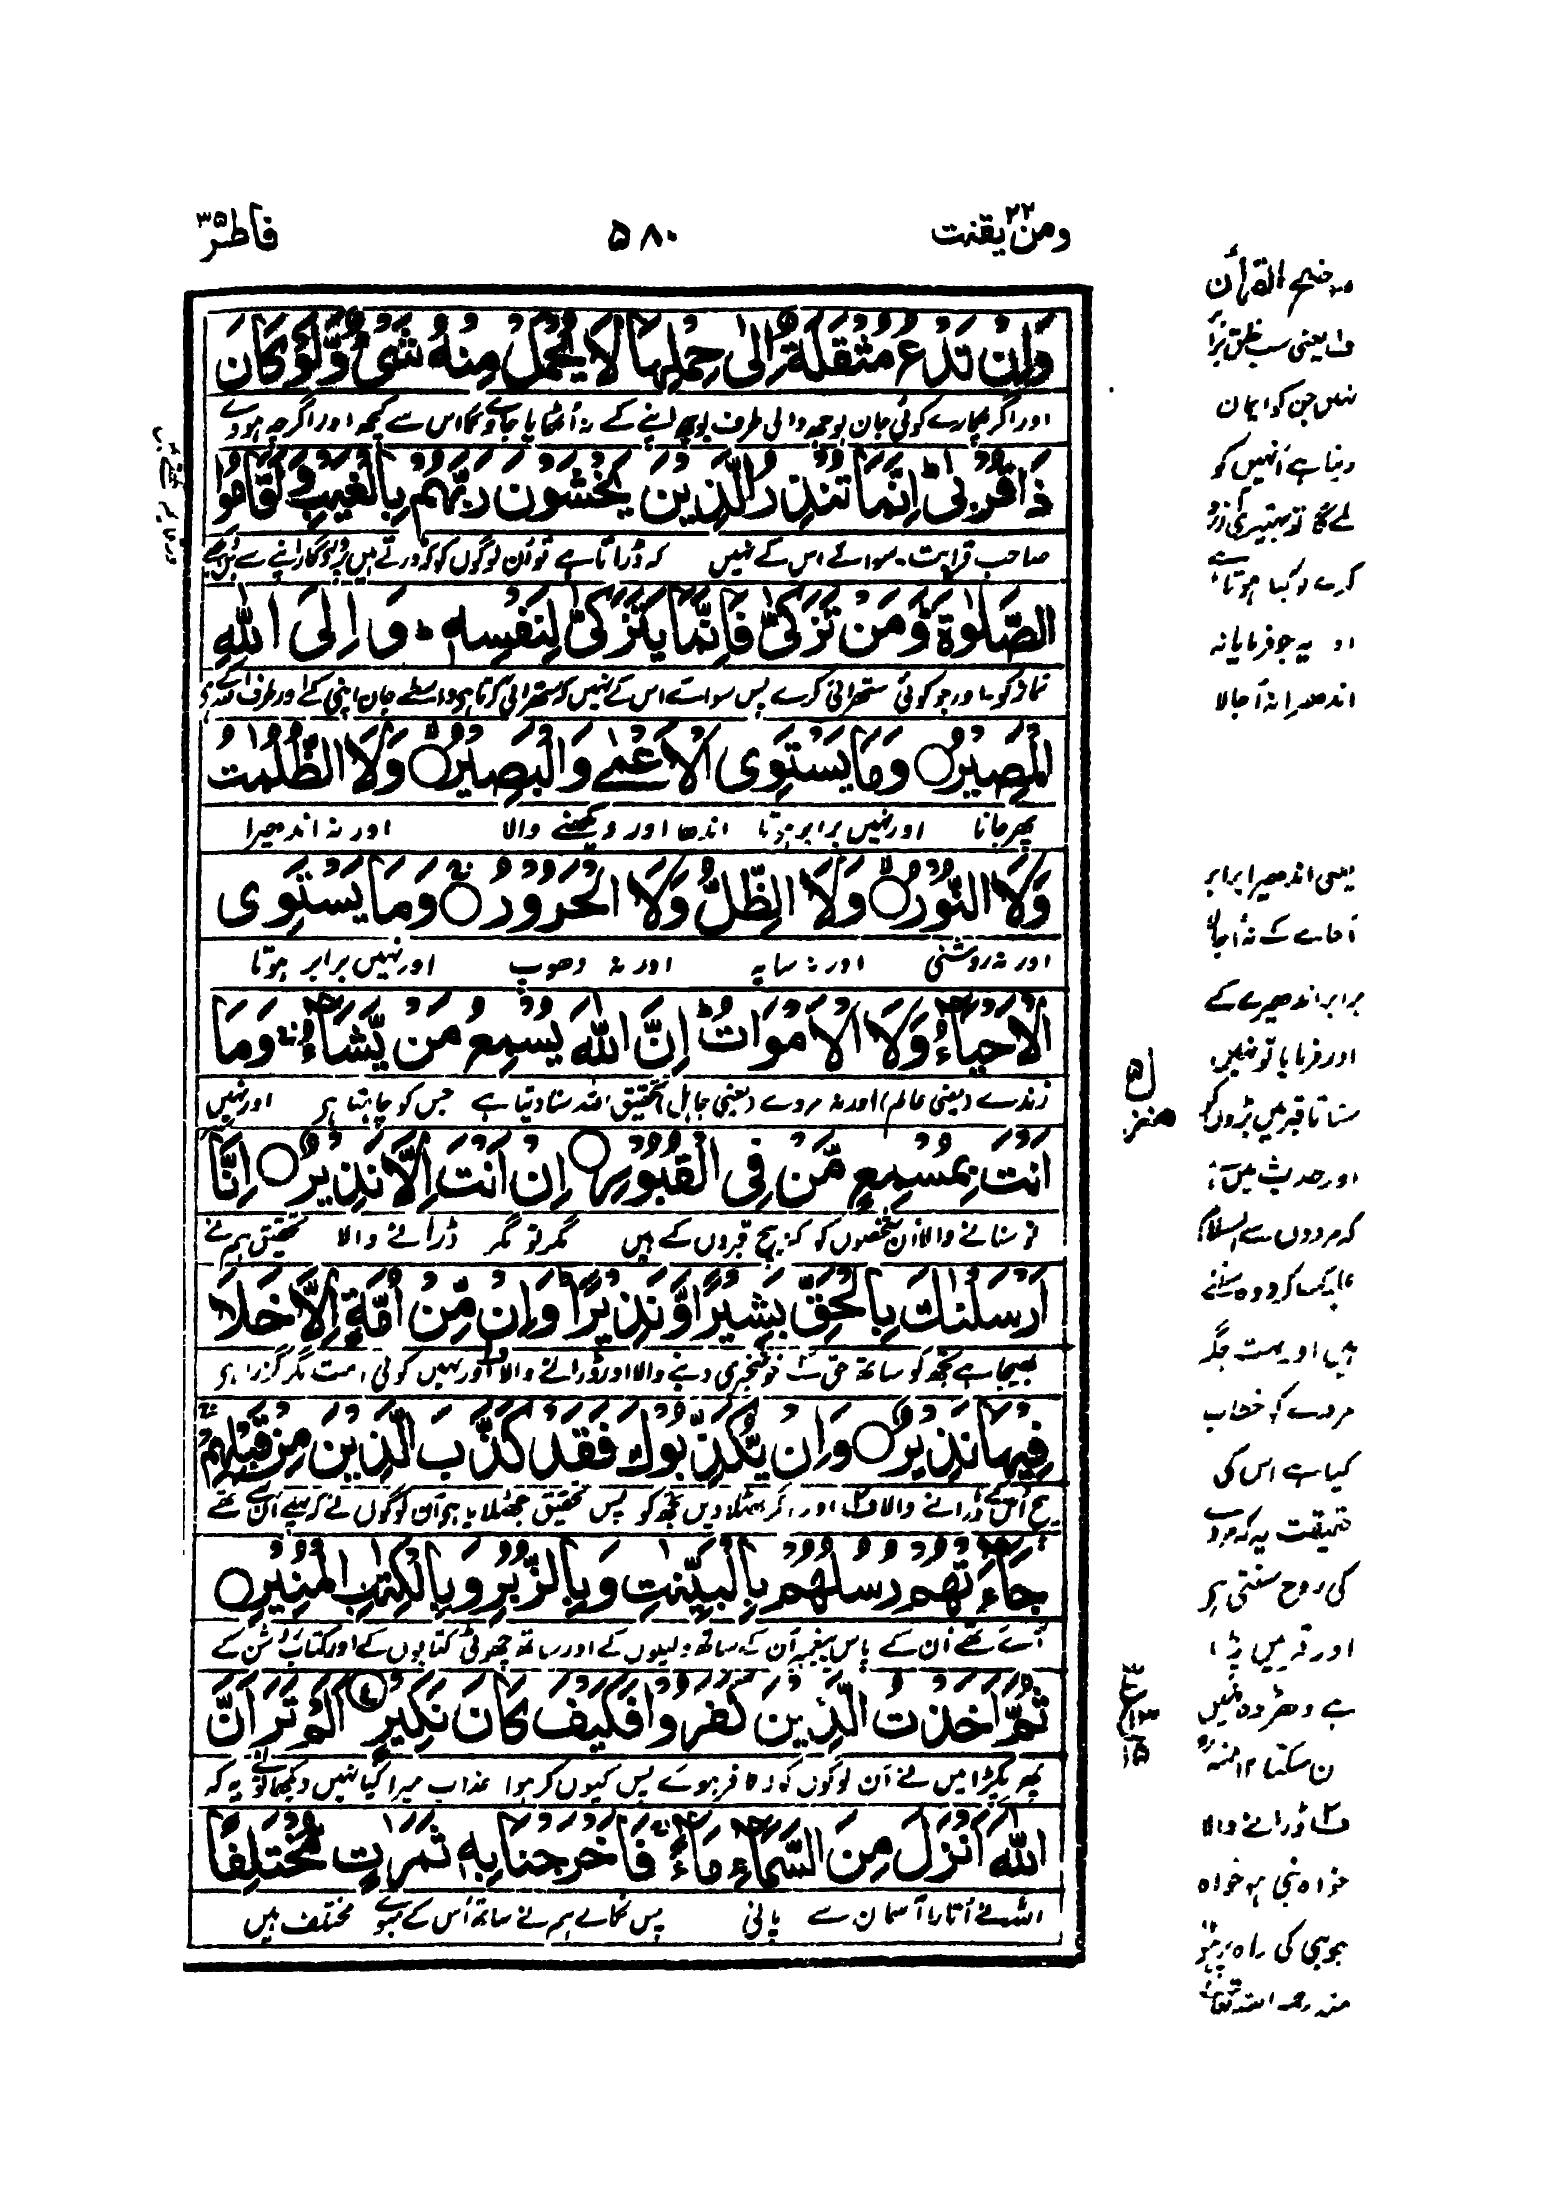 ومن یقنت ۲۲
۵۸۰
فاطر ۳۵
وَاِنْ تَدْعُ مُثْقَلَةٌ اِلٰى حِمْلِهَا لَا يُحْمَلْ مِنْهُ شَىْءٌ وَّلَوْ كَانَ
اور اگر پکارے کوئی جان بوجھ والی طرف بوجھ اپنے کے نہ اُٹھایا جاوےگا اس سے کچھ اور اگرچہ ہووے
ذَا قُرْبٰى ؕ اِنَّمَا تُنْذِرُ الَّذِيْنَ يَخْشَوْنَ رَبَّهُمْ بِالْغَيْبِ وَاَقَامُوا
صاحب قرابت۔ سوائے اس کے نہیں کہ ڈراتا ہے تو اُن لوگوں کو کہ ڈرتے ہیں پروردگار اپنے سے
الصَّلٰوةَ ؕ وَمَنْ تَزَكّٰى فَاِنَّمَا يَتَزَكّٰى لِنَفْسِهٖ ؕ وَاِلَى اللّٰهِ
نماز کو۔ اور جو کوئی ستھرائی کرے پس سوائے اس کے نہیں کہ ستھرائی کرتا ہی واسطے جان اپنی کے اور طرف اللہ
الْمَصِيْرُ ○ وَمَا يَسْتَوِى الْاَعْمٰى وَالْبَصِيْرُ ○ وَلَا الظُّلُمٰتُ
پھر جانا اور نہیں برابر ہوتا اندھا اور دیکھنے والا اور نہ اندھیرا
وَلَا النُّوْرُ ○ وَلَا الظِّلُّ وَلَا الْحَرُوْرُ ○ وَمَا يَسْتَوِى
اور نہ روشنی اور نہ سایہ اور نہ دھوپ اور نہیں برابر ہوتا
الْاَحْيَآءُ وَلَا الْاَمْوَاتُ ؕ اِنَّ اللّٰهَ يُسْمِعُ مَنْ يَّشَآءُ ۚ وَمَا
زندے (یعنی عالم) اور نہ مردے (یعنی جاہل) تحقیق اللہ سنا دیتا ہے جس کو چاہتا ہی اور نہیں
اَنْتَ بِمُسْمِعٍ مَّنْ فِى الْقُبُوْرِ ○ اِنْ اَنْتَ اِلَّا نَذِيْرٌ ○ اِنَّآ
تو سنانے والا اُن شخصوں کو کہ بیچ قبروں کے ہیں نہیں تو مگر ڈرانے والا تحقیق ہم نے
اَرْسَلْنٰكَ بِالْحَقِّ بَشِيْرًا وَّنَذِيْرًا ؕ وَاِنْ مِّنْ اُمَّةٍ اِلَّا خَلَا
بھیجا ہے تجھ کو ساتھ حق کے خوشخبری دینے والا اور ڈرانے والا اور نہیں کوئی امت مگر گزرا ہی
فِيْهَا نَذِيْرٌ ○ وَاِنْ يُّكَذِّبُوْكَ فَقَدْ كَذَّبَ الَّذِيْنَ مِنْ قَبْلِهِمْ ۚ
بیچ اُس کے ڈرانے والا اور اگر جھٹلادیں تجھ کو پس تحقیق جھٹلایا ہی اُن لوگوں نے کہ پہلے اُن سے تھے
جَآءَتْهُمْ رُسُلُهُمْ بِالْبَيِّنٰتِ وَبِالزُّبُرِ وَبِالْكِتٰبِ الْمُنِيْرِ ○
آئے تھے اُن کے پاس پیغمبر اُن کے ساتھ دلیلوں کے اور ساتھ چھوٹی کتابوں کے اور کتاب روشن کے
ثُمَّ اَخَذْتُ الَّذِيْنَ كَفَرُوْا فَكَيْفَ كَانَ نَكِيْرِ ○ اَلَمْ تَرَ اَنَّ
پھر پکڑا میں نے اُن لوگوں کو کہ کافر ہوئے پس کیوں کر ہوا عذاب میرا کیا نہیں دیکھا تو نے یہ کہ
اللّٰهَ اَنْزَلَ مِنَ السَّمَآءِ مَآءً ۚ فَاَخْرَجْنَا بِهٖ ثَمَرٰتٍ مُّخْتَلِفًا
اللہ نے اُتارا آسمان سے پانی پس نکالے ہم نے ساتھ اُس کے میوے مختلف ہیں
موضح القرآن
ف یعنی سب خلق برابر
نہیں جن کو ایمان
دینا ہے اُنہیں کو
ملے گا تو بہتیری آرزو
کرے تو کیا ہوتا ہے
اور یہ جو فرمایا نہ
اندھیرا نہ اُجالا
یعنی اندھیرا برابر
اُجالے کے نہ اُجالا
برابر اندھیرے کے
اور فرمایا تو نہیں
سناتا قبر میں پڑوں کو
اور حدیث میں آیا
کہ مردوں سے السلام
علیکم کرو وہ سنتے
ہیں اور بہت جگہ
مردے کو خطاب
کیا ہے اس کی
حقیقت یہ کہ مردے
کی روح سنتی ہی
اور قبر میں پڑا
ہے دھڑ وہ نہیں
سن سکتا ۱۲ منہ رح
ف ڈرانے والا
خواہ نبی ہو خواہ
نبی کی راہ پر ہو
منہ رحمہ اللہ تعالٰی
منزل ۵
ع
۳
۱۲
۱۵